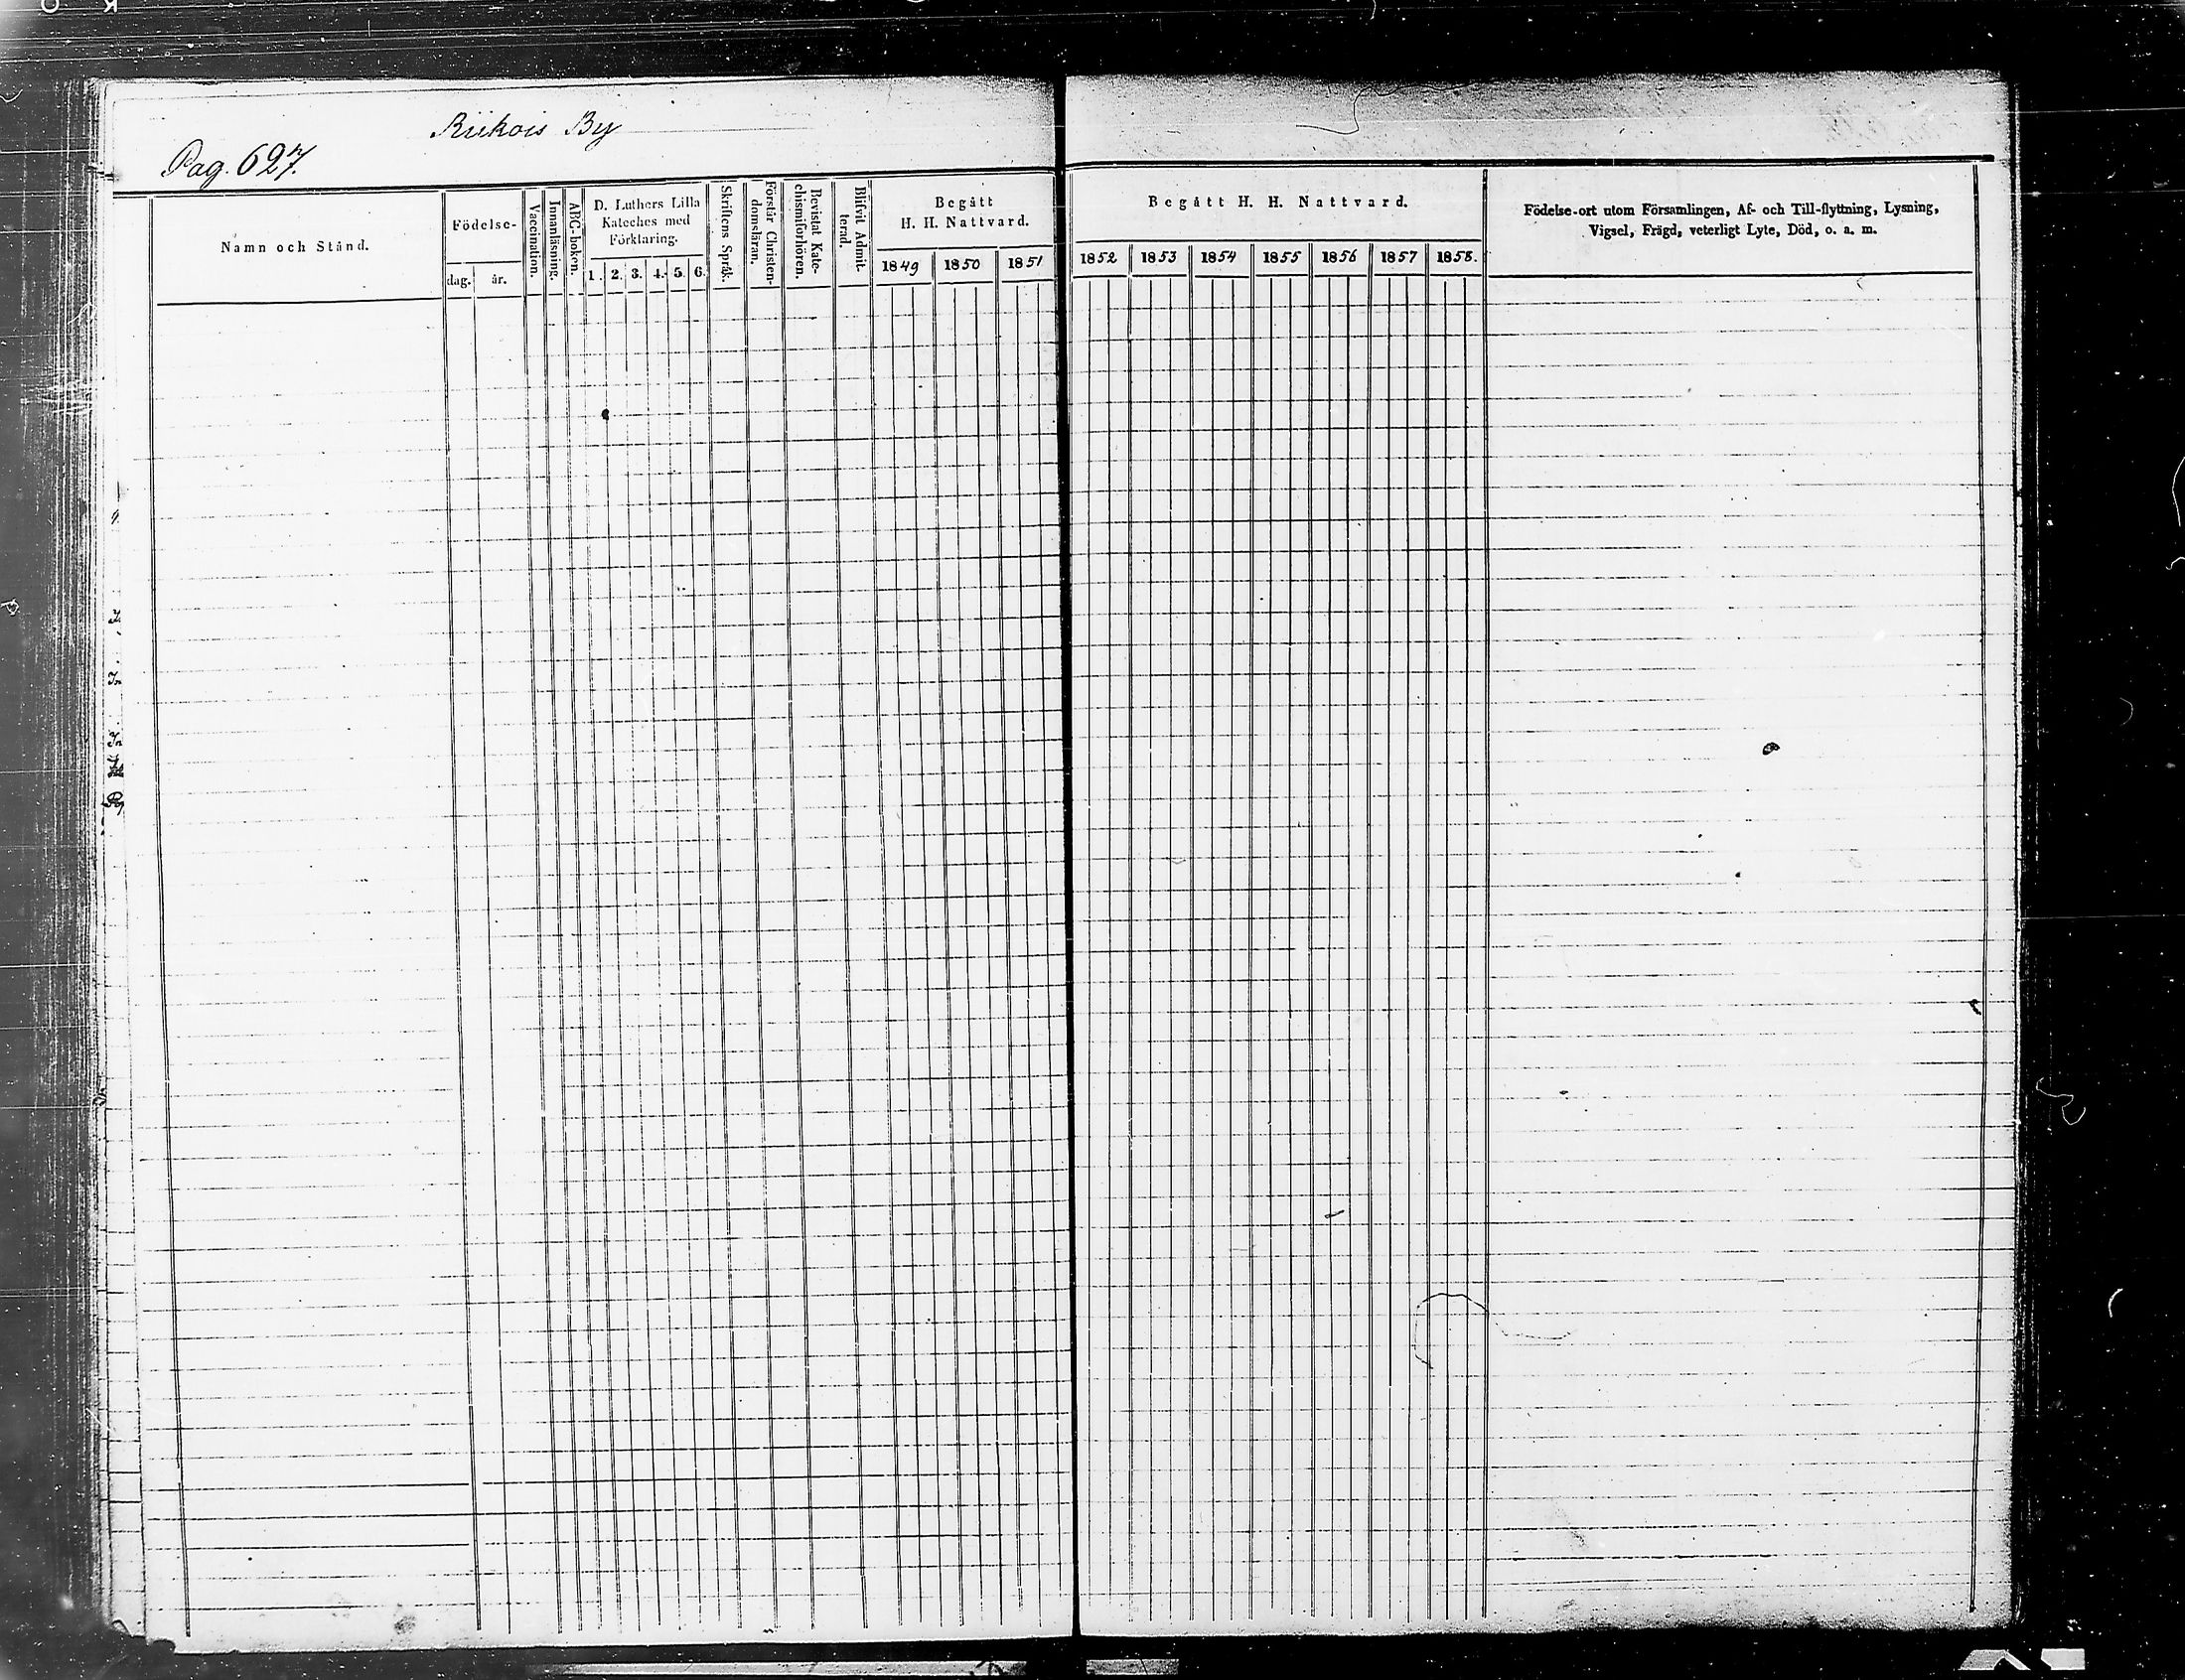 Riikois By
Pag. 627.
Namn och Stånd.
Födelse-
dag. år.
Vaccination.
Innanläsning.
ABC-boken.
D. Luthers Lilla
Kateches med
Förklaring.
1. 2. 3. 4. 5. 6.
Skriftens Språk.
Förstår Christen-
domsläran.
Bevistat Kate-
chismiförhören.
Blifvit Admit-
terad.
Begått
H. H. Nattvard.
1849 1850 1851
Begått H. H. Nattvard.
1852 1853 1854 1855 1856 1857 1858.
Födelse-ort utom Församlingen, Af- och Till-flyttning, Lysning,
Vigsel, Frägd, veterligt Lyte, Död, o. a. m.